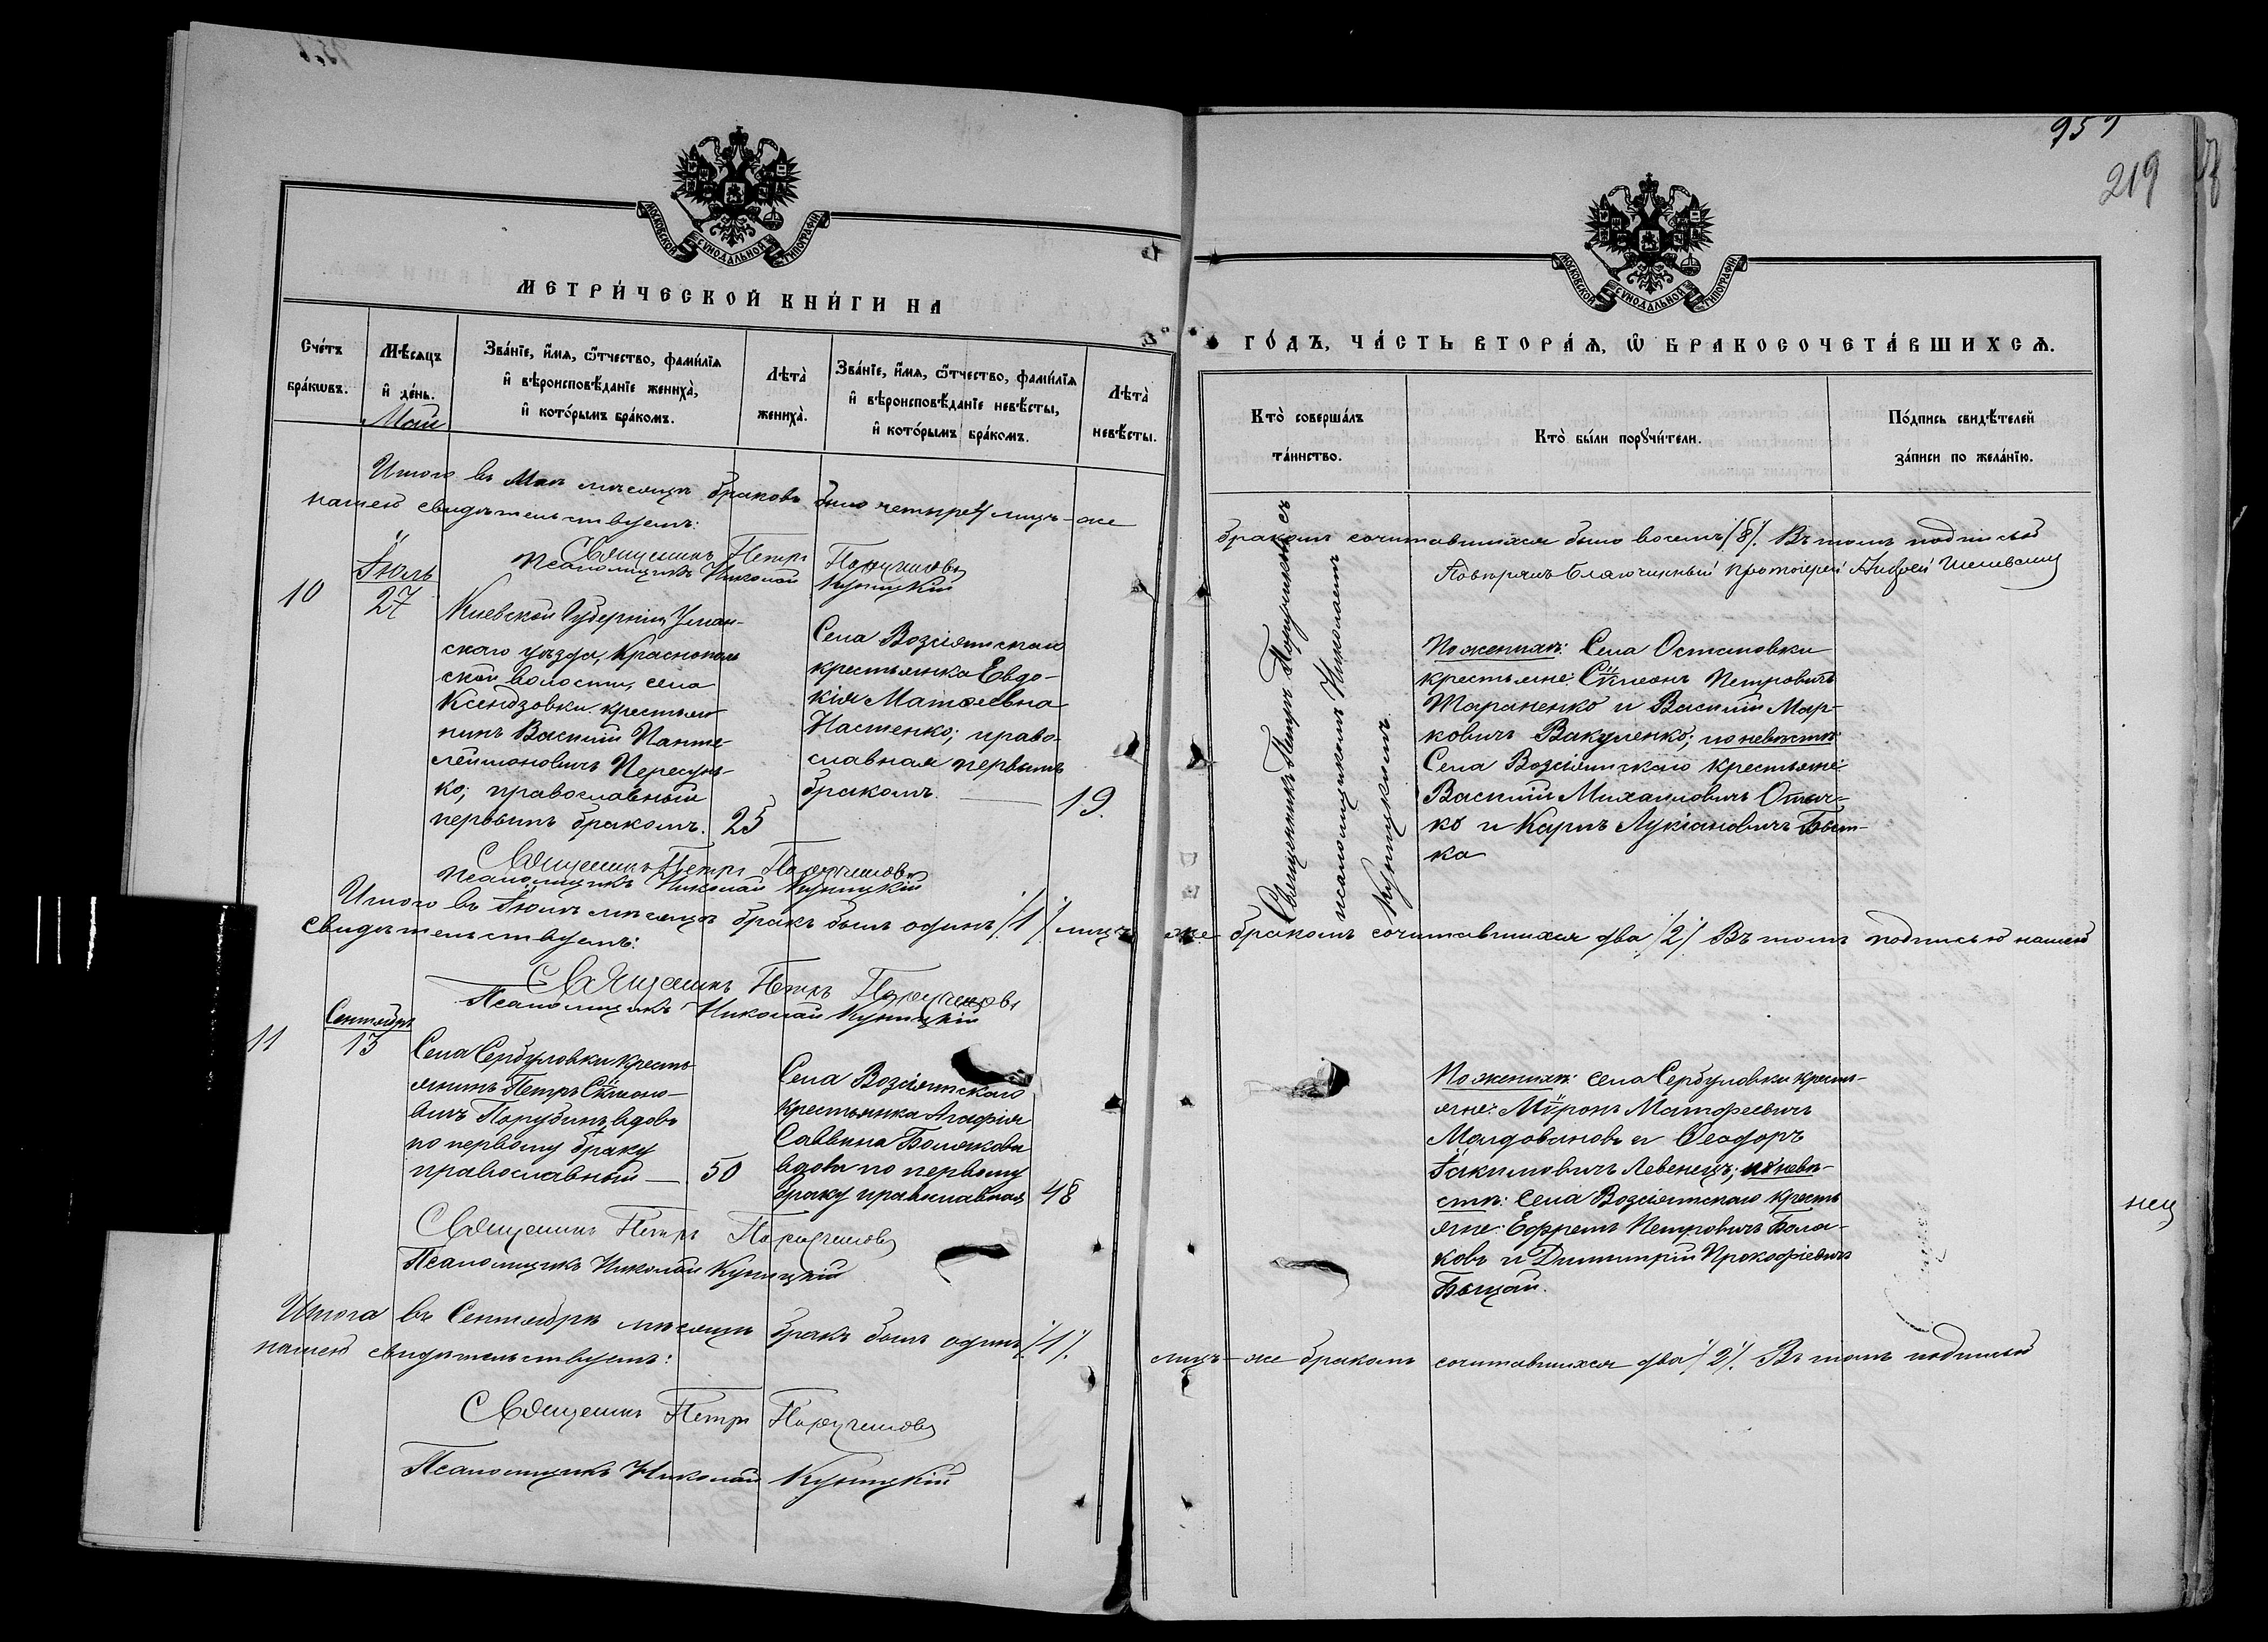 959
219
МОСКОВСКОЙ СѴНОДАЛЬНОЙ ТИПОГРАФІИ
МЕТРИ́ЧЕСКОЙ КНИ́ГИ НА
Сче́тъ бра́кωвъ.
Мѣ́сяцъ и҆ де́нь.
Май
Зва́нїе, и҆́мя, ѻ҆́тчество, фами́лїя
и҆ вѣроисповѣ́данїе жениха̀,
и҆ кото́рымъ бра́комъ.
Лѣта̀
жениха̀.
Зва́нїе, и҆́мя, ѻ҆́тчество, фами́лїя
и҆ вѣроисповѣ́данїе невѣ́сты,
и҆ кото́рымъ бра́комъ.
Лѣта̀
невѣ́сты.
Итого въ Маѣ мѣсяцѣ браковъ было четыре 4 лицъ-же
нашею свидѣтельствуемъ:
Священникъ Петръ
Псаломщикъ Николай Куницкій
Іюль
10
27
Кіевской Губерніи, Уман-
скаго уѣзда, Краснополь
ской волости, села
Ксендзовки крестья
нинъ Василій Панте-
леймоновичъ Пересунь-
ко; православный
первымъ бракомъ.
25
Села Возсіятскаго
крестьянка Евдо-
кія Матѳеевна
Настенко; право-
славная первымъ
бракомъ.
19.
Священникъ Петръ
Псаломщикъ Николай Куницкій
Итого въ Іюлѣ мѣсяцѣ бракъ былъ одинъ /1/ лицъ
свидѣтельствуемъ:
Священникъ Петръ
Псаломщикъ Николай Куницкій
Сентябрь
11
13
Села Сербуловки кресть
янинъ Петръ Сѵмеоно-
вичъ Порубинъ, вдовъ
по первому браку
православный —
50
Села Возсіятскаго
крестьянка Агафія
Саввина Болякова
вдова по первому
браку православная
48
Священникъ Петръ
Псаломщикъ Николай Куницкій
Итого въ Сентябрѣ мѣсяцѣ бракъ былъ одинъ /1/.
нашею свидѣтельствуемъ:
Священникъ Петръ
Псаломщикъ Николай Куницкій
МОСКОВСКОЙ СѴНОДАЛЬНОЙ ТИПОГРАФІИ
ГО́ДЪ, ЧА́СТЬ ВТОРА́Я, Ѡ҆ БРАКОСОЧЕТА́ВШИХСЯ.
Кто̀ соверша́лъ
та́инство.
Кто̀ бы́ли порꙋчи́тели.
По́дпись свидѣ́телей
за́писи по жела́нїю.
бракомъ сочитавшихся было восемь /8/. Въ томъ подписью
Повѣрялъ Благочинный Протоіерей Андрей
Священникъ Петръ съ
псаломщикомъ Николаемъ
Куницкимъ
По женихѣ: Села Остаповки
крестьяне: Сѵмеонъ Петровичъ
Тараненко и Василій Мар-
ковичъ Вакуленко; по невѣстѣ:
Села Возсіятскаго крестьяне:
Василій Михаиловичъ Отыч-
ко и Карпъ Лукіановичъ Быт-
ка
же бракомъ сочитавшихся два /2/ Въ томъ подписью нашею
По женихѣ: села Сербуловки кресть-
яне: Мѵронъ Матфеевичъ
Малдовановъ и Ѳеодоръ
Іакимовичъ Левенецъ; по невѣ-
стѣ: села Возсіятскаго кресть
яне: Ефремъ Петровичъ Боля-
ковъ и Димитрій Прокофіевичъ
Быцай.
лицъ-же бракомъ сочитавшихся два /2/. Въ томъ подписью